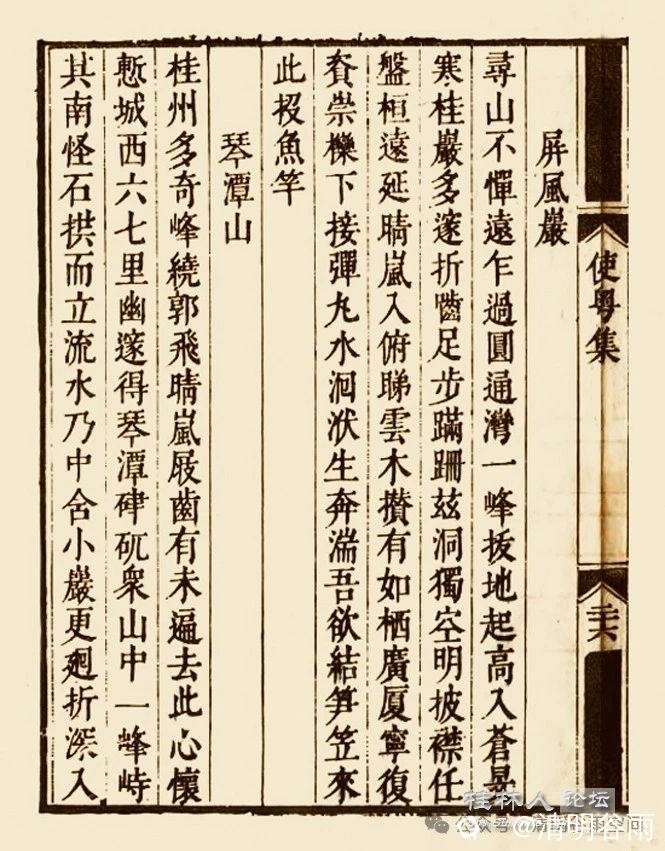 使粤集
屏風巖
尋山不憚遠乍過圓通灣一峰拔地起高入蒼旻
寒桂巖多邃折嚙足步蹣跚茲洞獨空明披襟任
盤桓遠延晴嵐入俯睇雲木攢有如栖廣厦寧復
崇下接彈丸水洄洑生奔湍吾欲結笋笠來
此投魚竿
琴潭山
桂州多奇峰繞郭飛晴嵐屐齒有未遍去此心懷
慙城西六七里幽邃得琴潭硉矹衆山中一峰峙
其南怪石拱而立流水乃中含小巖更廻折深入
桂林人论坛
@清明谷雨